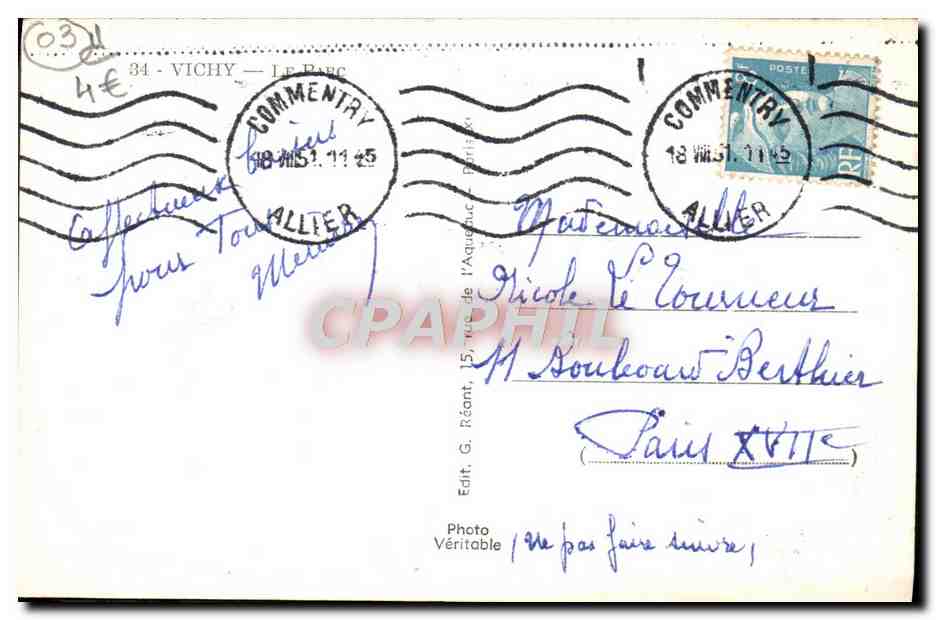 03
4€
34 - VICHY — LE PARC
COMMENTRY
18 VIII51. 11 45
ALLIER
COMMENTRY
18 VIII51. 11 45
ALLIER
POSTE
RF
Affectueux baisers
pour Tous
Mademoiselle
Nicole Le Tourneur
11 Boulevard Berthier
Paris XVIIe
(ne pas faire suivre)
Edit. G. Réant, 15, rue de l'Aqueduc - Paris-X
Photo
Véritable
CPAPHIL